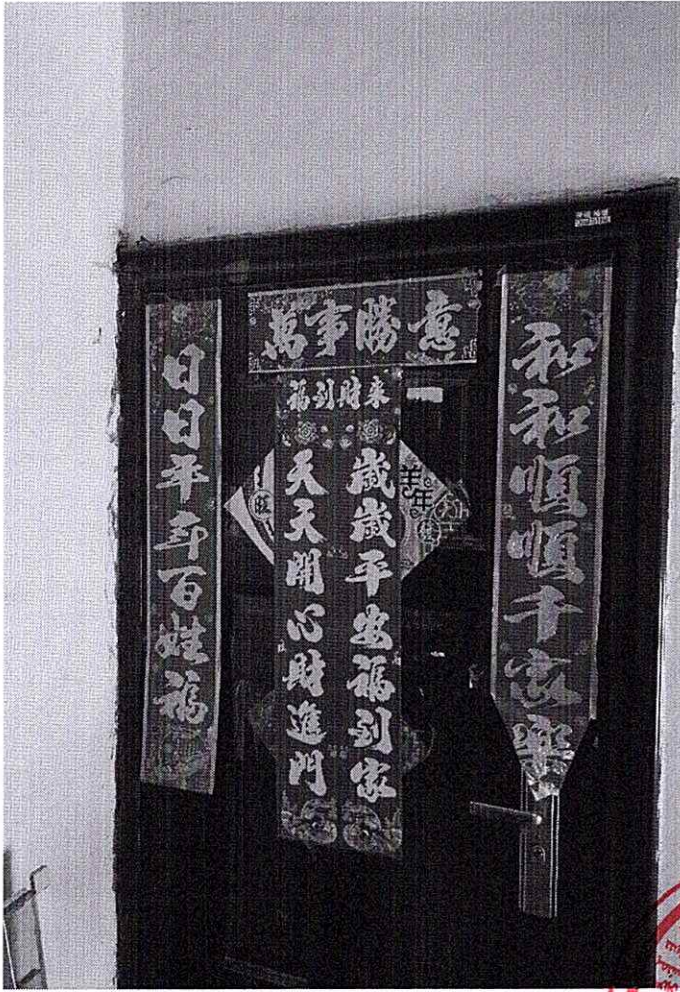 萬事勝意
和和順順千家樂
日日平安百姓福
福到財来
歲歲平安福到家
天天開心財進門
羊年
旺